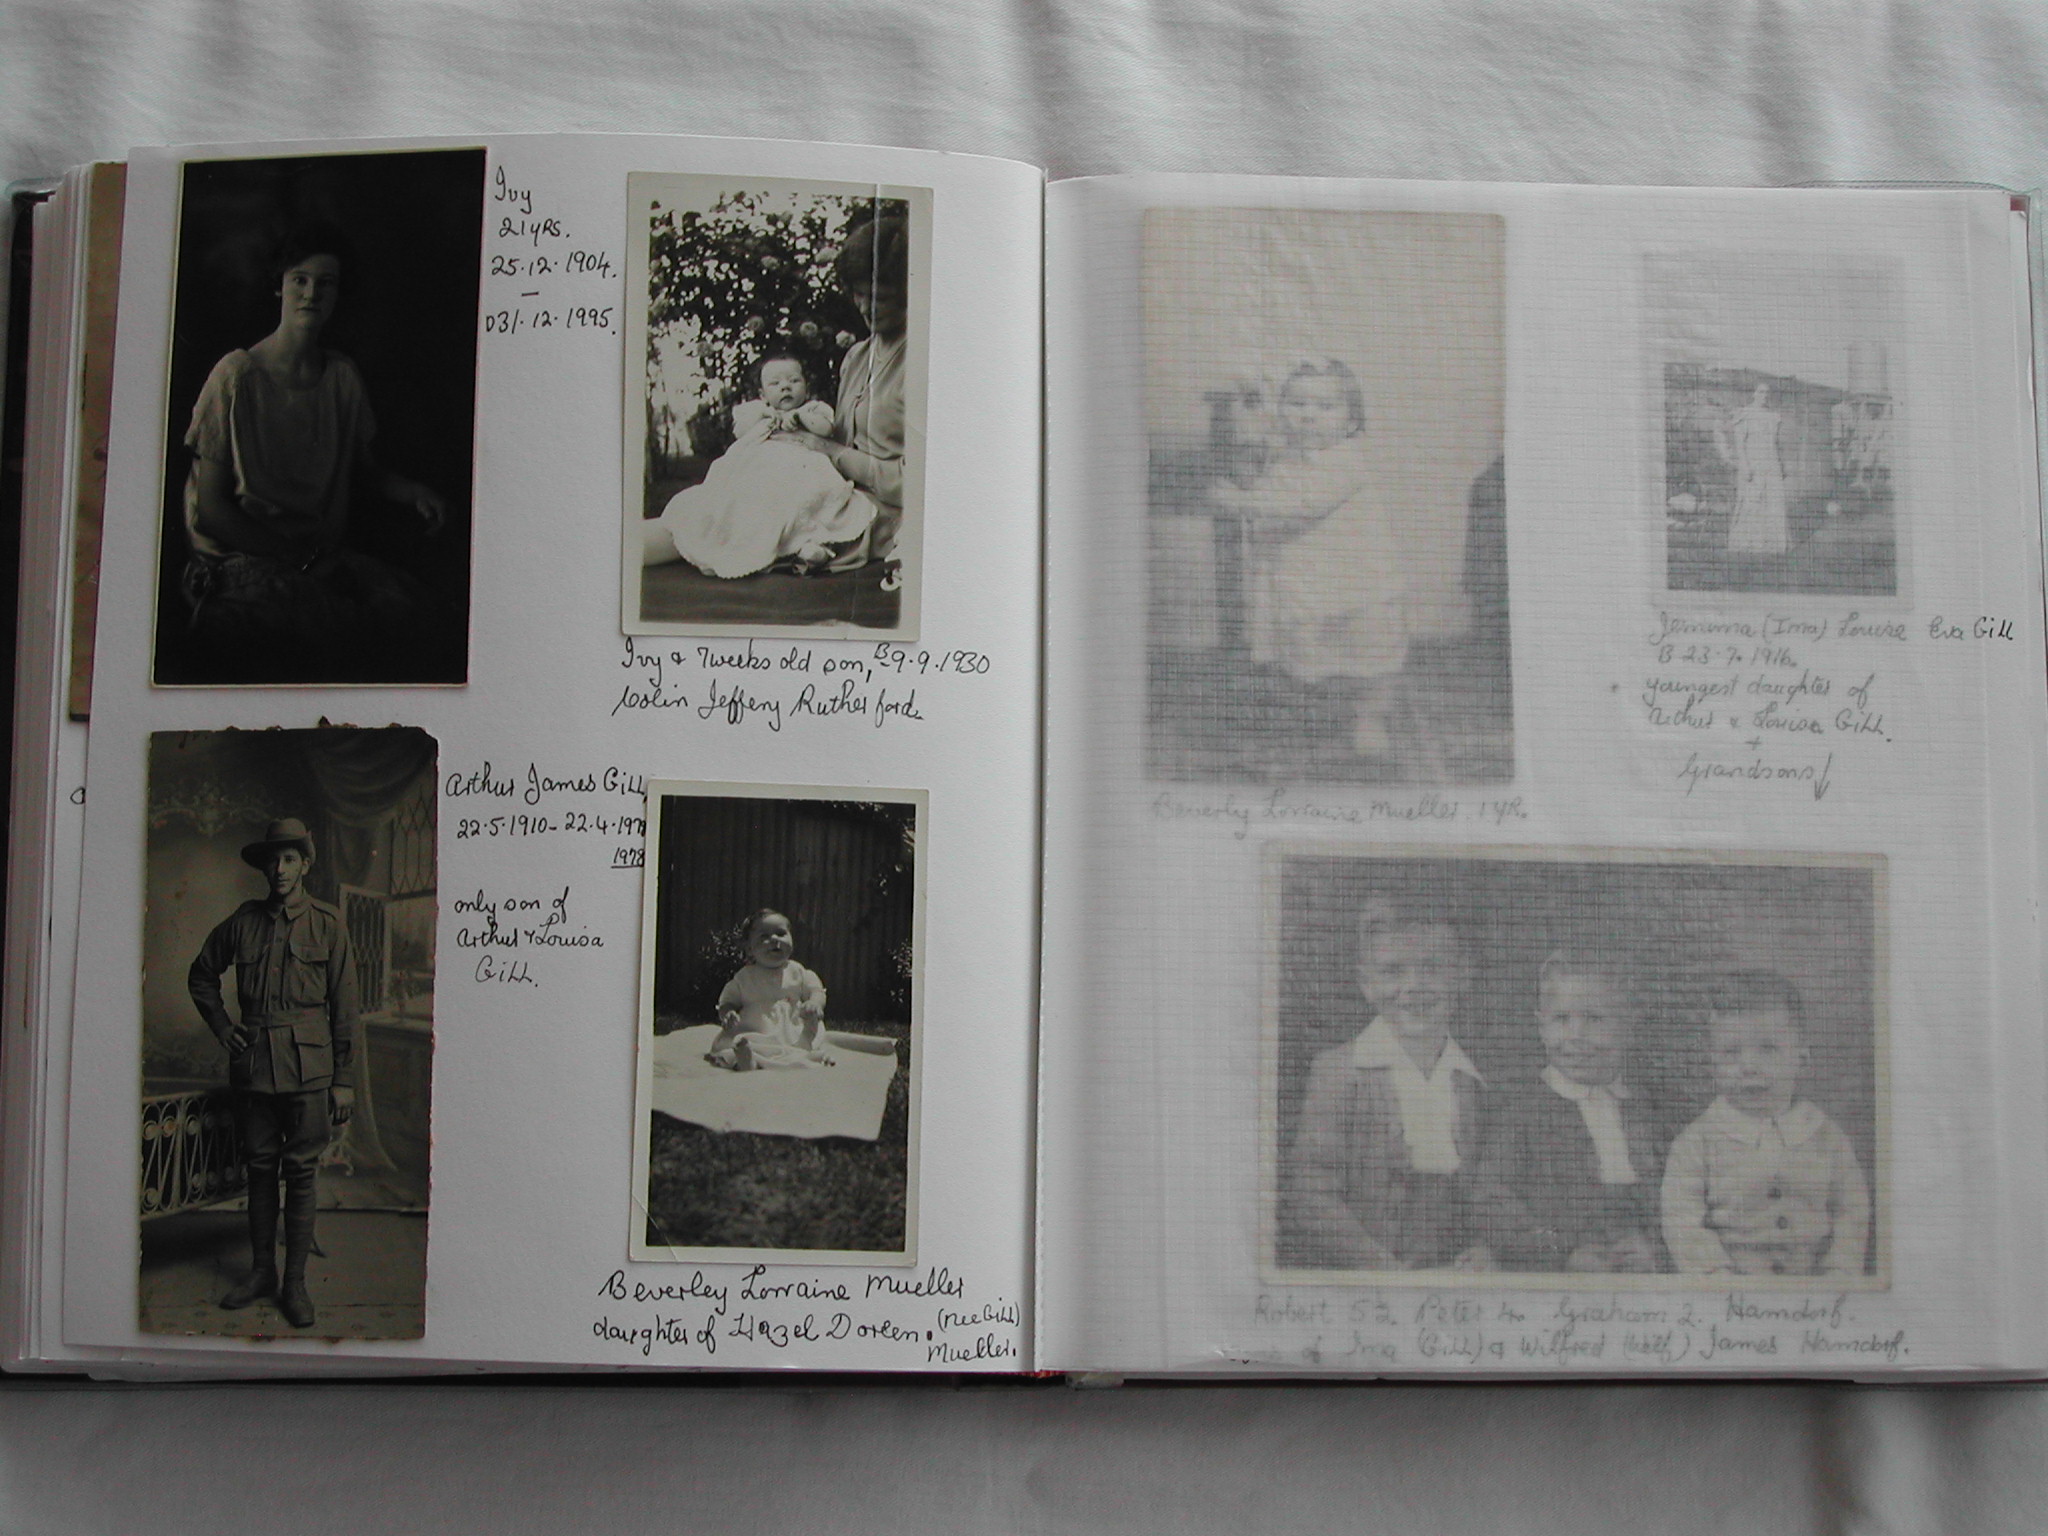 Ivy
21 YRS.
25.12.1904.
—
D 31.12.1995.
Ivy & 7 weeks old son, B-9.9.1930
Colin Jeffery Rutherford.
Arthur James Gill,
22.5.1910 - 22.4.197
1978
only son of
Arthur & Louisa
Gill.
Beverley Lorraine Mueller
daughter of Hazel Doreen. (nee Gill)
Mueller.
Beverly Lorraine Mueller. 1 YR.
Jemima (Ima) Louise Eva Gill
B 23.7.1916.
youngest daughter of
Arthur & Louisa Gill.
+
Grandsons ↓
Robert 5½. Peter 4. Graham 2. Hamdorf.
of Ima (Gill) & Wilfred (Wilf) James Hamdorf.